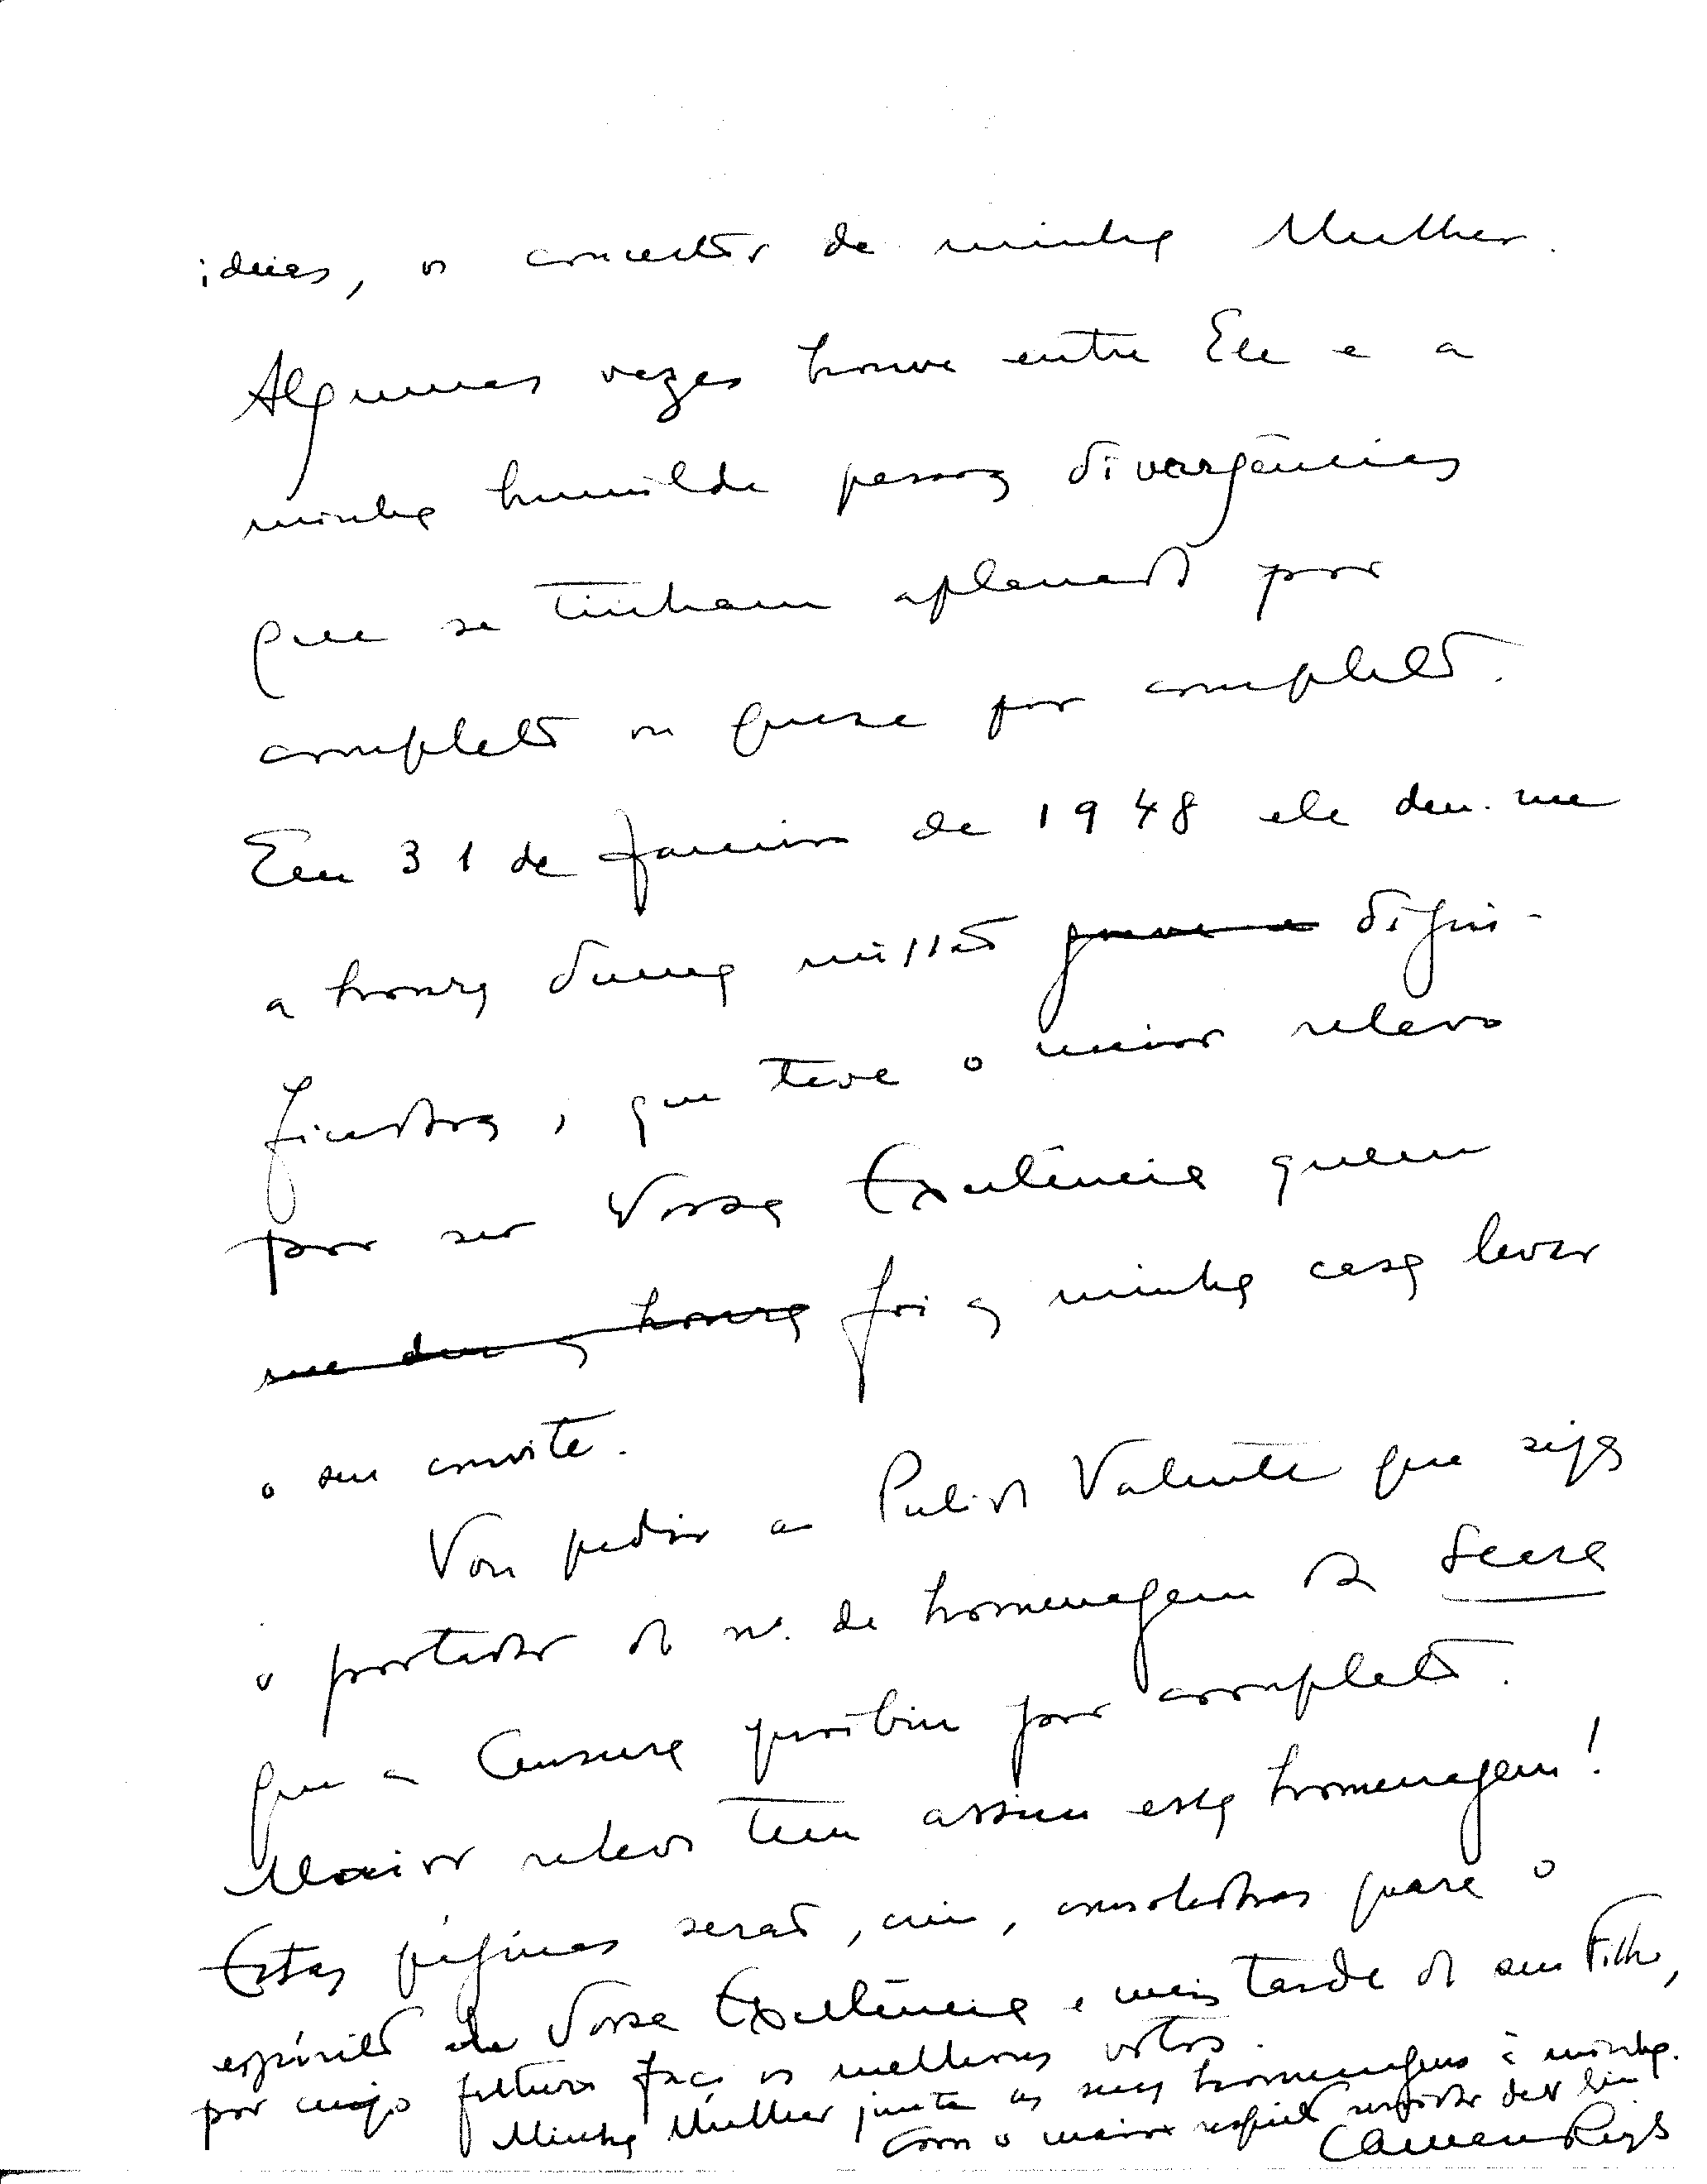 ideias, os concertos de minha Mulher.
Algumas vezes houve entre Ele e a
minha humilde pessoa divergências
que se tinham aplanado por
completo ou quase por completo.
Em 31 de Janeiro de 1948 ele deu-me
a honra duma missão digni-
ficadora, que teve o maior relevo
por ser Vossa Excelência quem
me deu a honra foi a minha casa levar
o seu convite.
Vou pedir ao Pulido Valente que seja
o portador do nº. de homenagem da Seara
que a Censura proibiu por completo.
Maior relevo tem assim essa homenagem!
Estas páginas serão, creio, consoladoras para o
espírito de Vossa Excelência e mais tarde do seu Filho,
por cujo futuro faço os melhores votos.
Minha Mulher junta as suas homenagens à minha.
Com o maior respeito
Câmara Reys